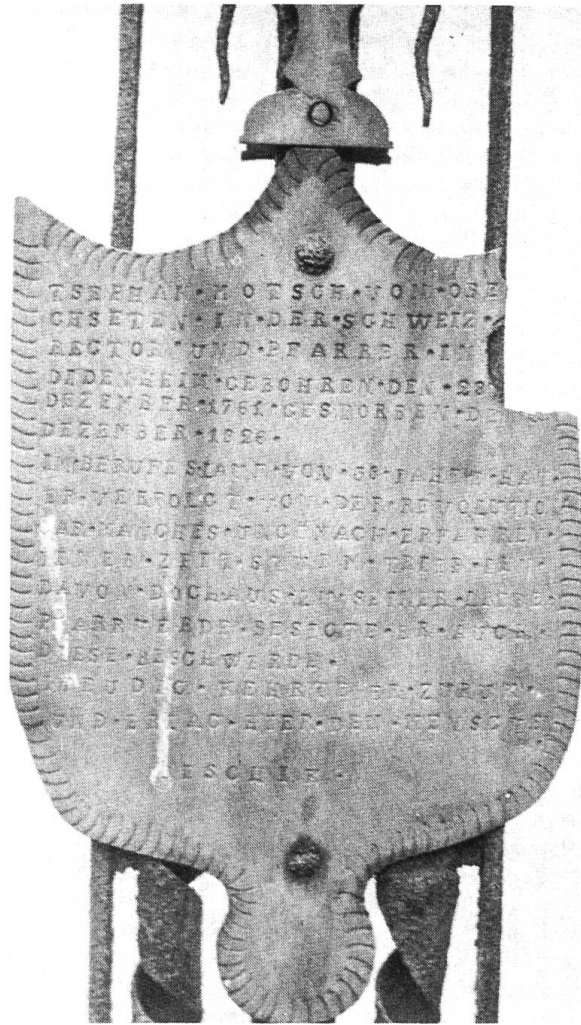 TSEPHAN·MOTSCH·VON·OBE
CHSETEN·IN·DER·SCHWEIZ·
RECTOR·UND·PFARRER·IN
DIDENHEIM·GEBOHREN·DEN·28
DEZEMBER·1761·GESDORBEN·DE
DEZEMBER·1826·
IM·BERUFES·LAUF·VON·38·JAHEN·HAT·
ER·VERFOLGT·VON·DER·REVOLUTIO
GAR·MANCHES·UNGEMACH·ERFAREN·
ZEIT·STURM·TRIEB·IHN·
DAVON·DOCH·AUS·ZU·SEINER·LIEBE·
PFARR·HERDE·BESIGTE·ER·AUCH·
DIESE·BESCHWERDE·
FREUDIG·KEHRTE·ER·ZURUK·
UND·ERLAG·HIER·DEN·MENSCHEN
ESCHIK·